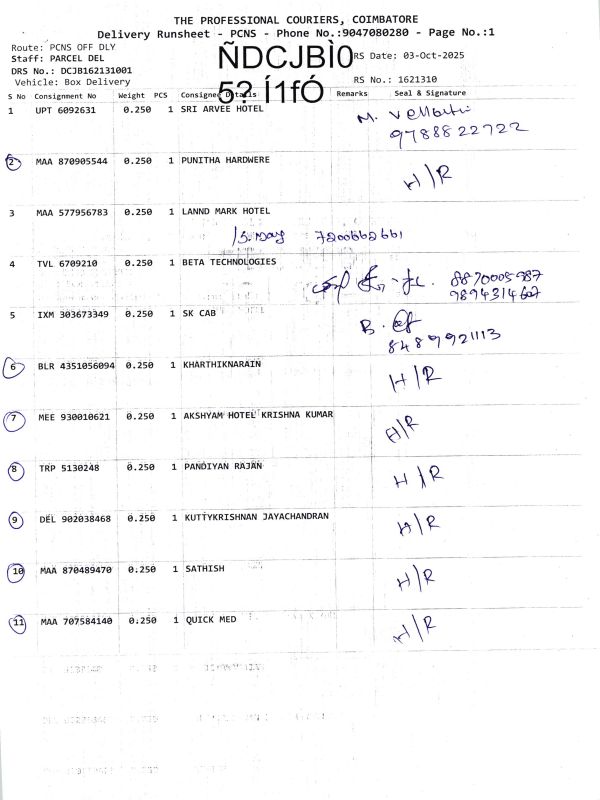 THE PROFESSIONAL COURIERS, COIMBATORE
Delivery Runsheet - PCNS - Phone No.:9047080280 - Page No.:1
Route: PCNS OFF DLY
Staff: PARCEL DEL
ÑDCJBÌ0
RS Date: 03-Oct-2025
DRS No.: DCJB162131001
Vehicle: Box Delivery
5? Í1fÓ
RS No.: 1621310
S No Consignment No Weight PCS Consignee Details Remarks Seal & Signature
1 UPT 6092631 0.250 1 SRI ARVEE HOTEL
M.
9788822722
2 MAA 870905544 0.250 1 PUNITHA HARDWERE H/R
3 MAA 577956783 0.250 1 LANND MARK HOTEL
7200662661
4 TVL 6709210 0.250 1 BETA TECHNOLOGIES
8870005987
9894314607
5 IXM 303673349 0.250 1 SK CAB B.
8489921113
6 BLR 4351056094 0.250 1 KHARTHIKNARAIN H/R
7 MEE 930010621 0.250 1 AKSHYAM HOTEL KRISHNA KUMAR H/R
8 TRP 5130248 0.250 1 PANDIYAN RAJAN H/R
9 DEL 902038468 0.250 1 KUTTYKRISHNAN JAYACHANDRAN H/R
10 MAA 870489470 0.250 1 SATHISH H/R
11 MAA 707584140 0.250 1 QUICK MED H/R